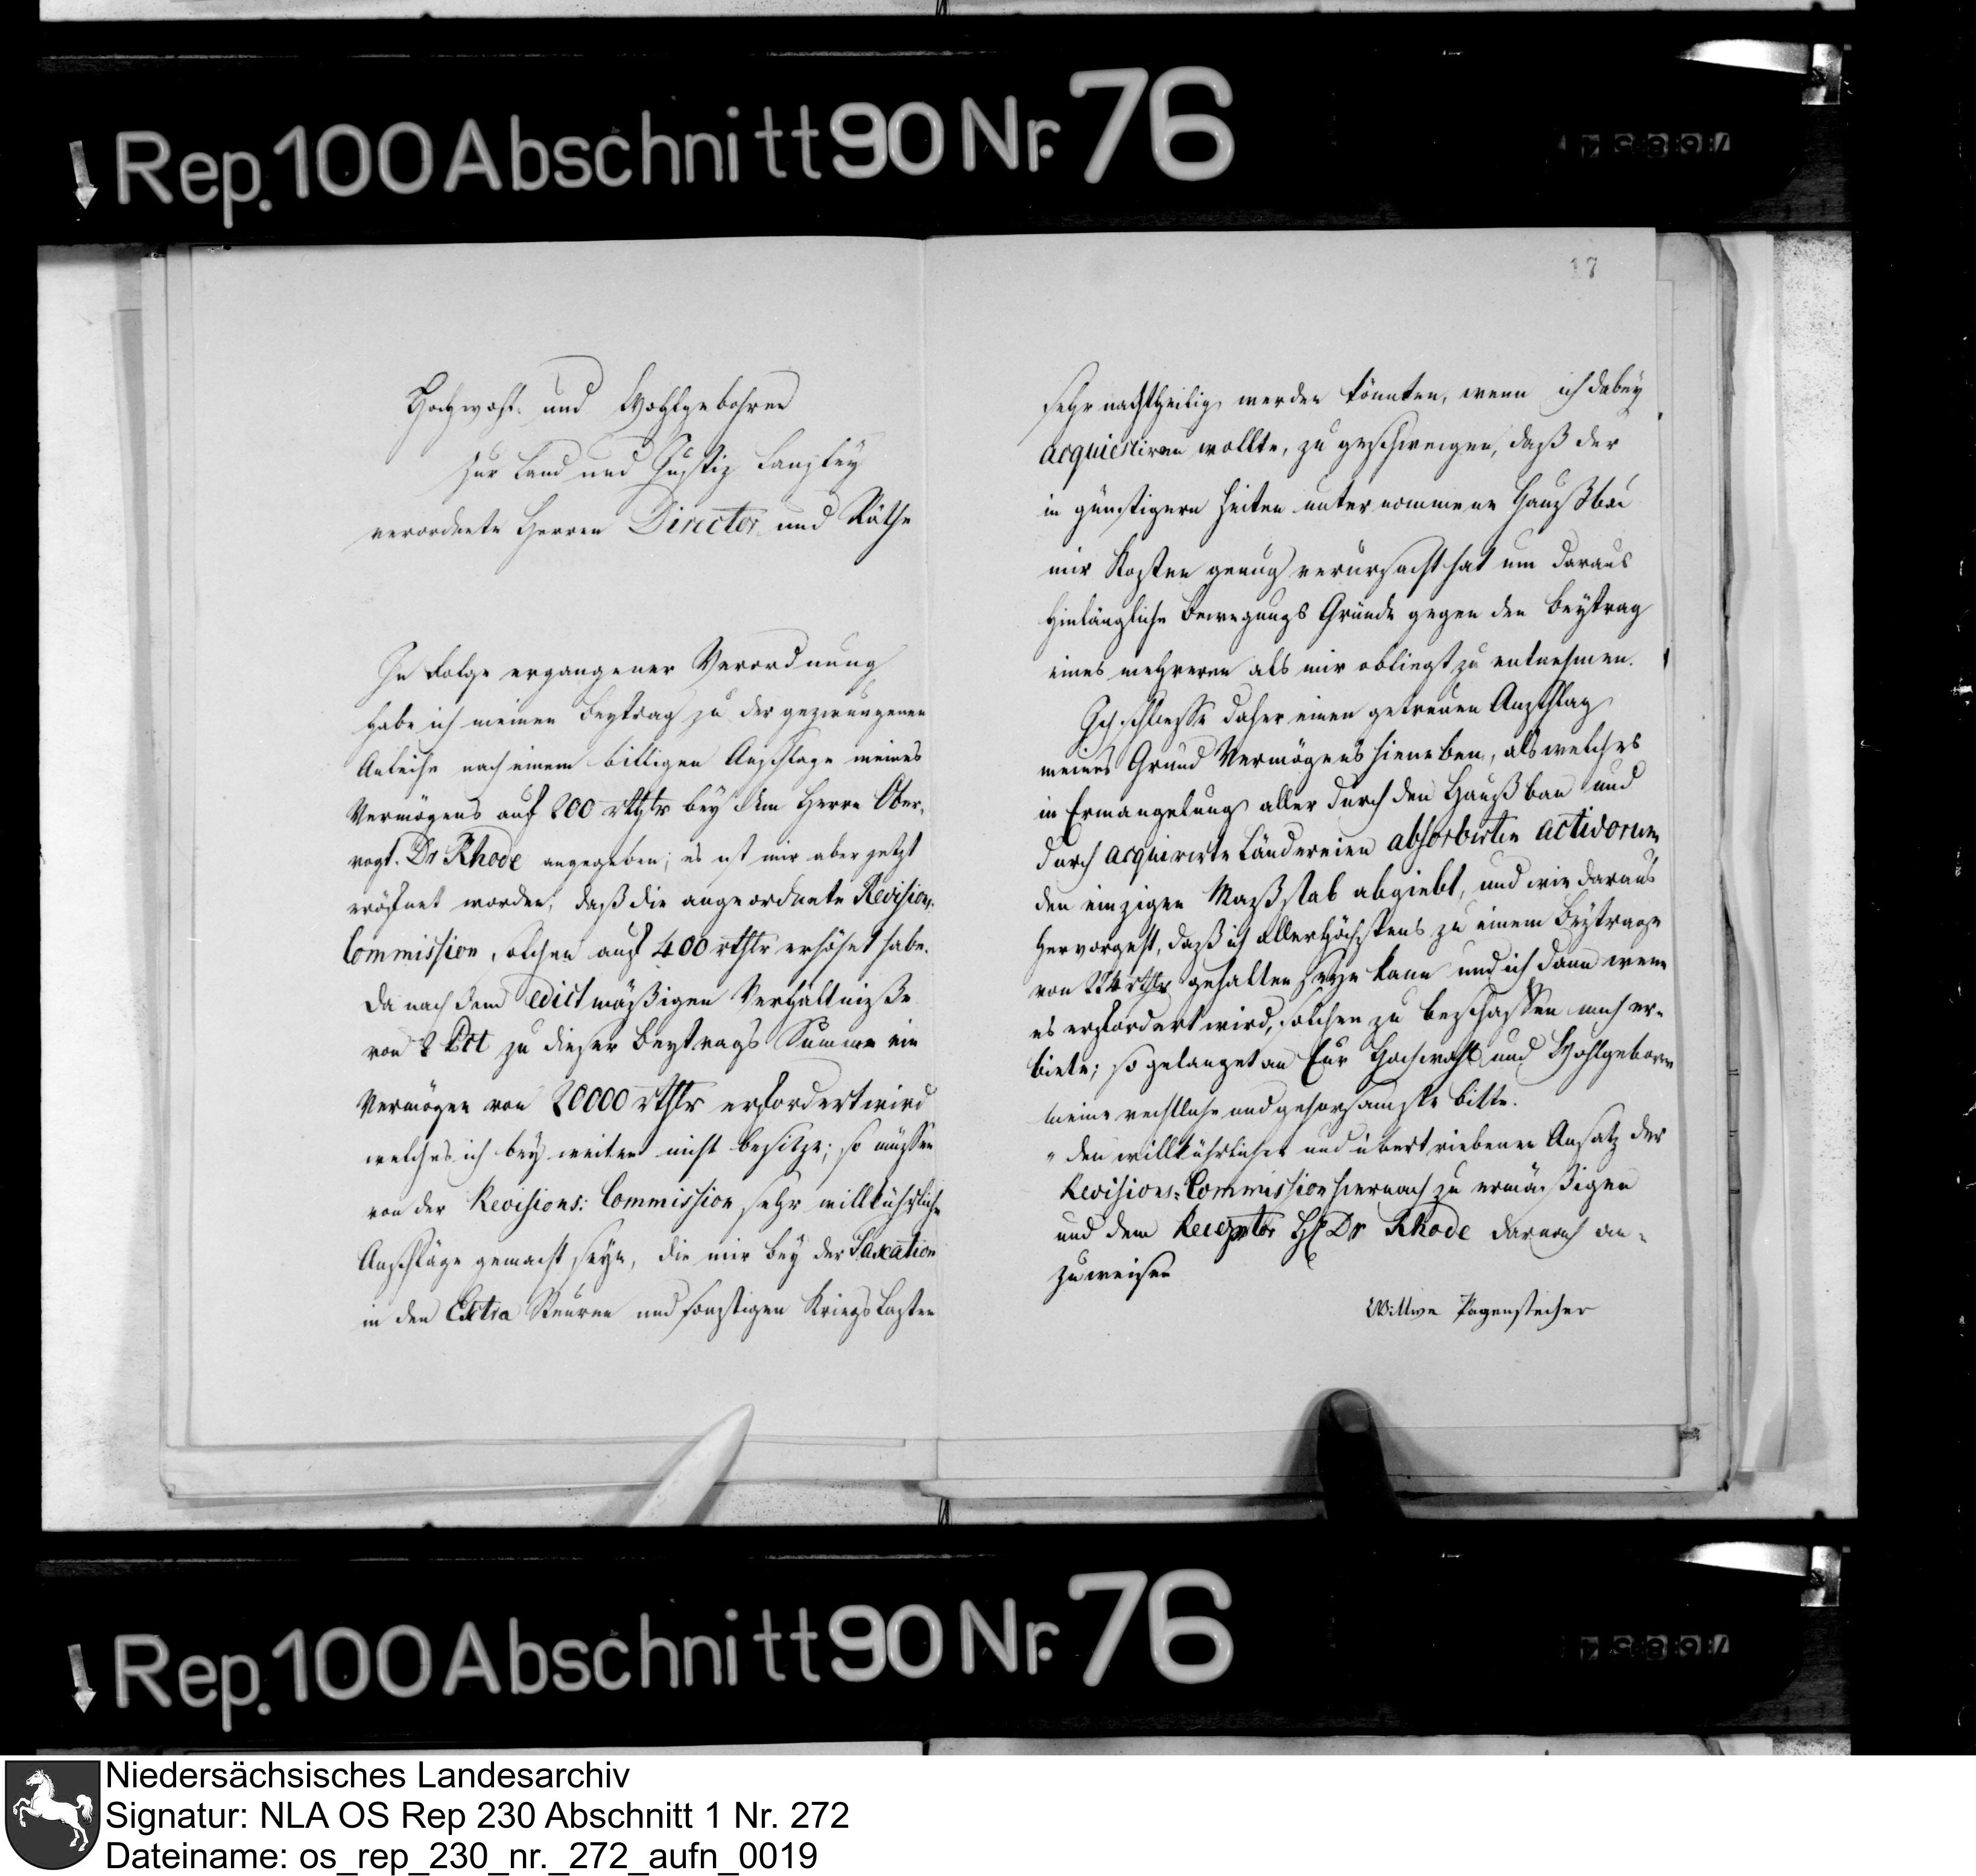 Rep. 100 Abschnitt 90 Nr. 76
17
Hochwohl- und Wohlgebohrne
zur Land und Justiz Canzley
verordnete Herren Director und Räthe
In Folge ergangener Verordnung
habe ich meinen Beytrag zu der gezwungenen
Anleihe nach einem billigen Anschlage meines
Vermögens auf 200 rthlr bey dem Herrn Ober-
vogt Dr Rhode angegeben; es ist mir aber jetzt
eröfnet worden, daß die angeordnete Revisions-
Commission solchen auf 400 rthlr erhöhet habe.
Da nach dem edictmäßigen Verhältniße
von 2 Pct zu dieser Beytrags Summe ein
Vermögen von 20000 rthlr erfordert wird
welches ich bey weiten nicht besitze; so müssen
von der Revisions: Commission sehr willkührliche
Anschläge gemacht seyn, die mir bey der Taxation
in den Extra Steuren und sonstigen Kriegs Lasten
sehr nachtheilig werden könnten, wenn ich dabey
acquiesciren wollte, zu geschweigen, daß der
in günstigern Zeiten unternommene Haußbau
mir Kosten genug verursacht hat um daraus
hinlängliche Bewegungs Gründe gegen den Beytrag
eines mehreren als mir obliegt zu entnehmen.
Ich schliesse daher einen getreuen Anschlag
meines Grund Vermögens hieneben, als welches
in Ermangelung aller durch den Haußbau und
durch acquirirte Ländereien absorbirten activorum
den einzigen Maßstab abgiebt, und wie daraus
hervorgeht, daß ich allerhöchstens zu einem Beytrage
von 224 rthlr gehalten seyn kann und ich dann wenn
es erfordert wird, solchen zu beschaffen mich er-
biete; so gelanget an Eur Hochwohl und Wohlgeboren
meine rechtliche und gehorsamste Bitte.
" den willkührlichen und übertriebenen Ansatz der
Revisions-Commission hiernach zu ermäßigen
und dem Receptor H. Dr Rhode darnach an-
zuweisen
Wittwe Pagenstecher
Rep. 100 Abschnitt 90 Nr. 76
Niedersächsisches Landesarchiv
Signatur: NLA OS Rep 230 Abschnitt 1 Nr. 272
Dateiname: os_rep_230_nr._272_aufn_0019